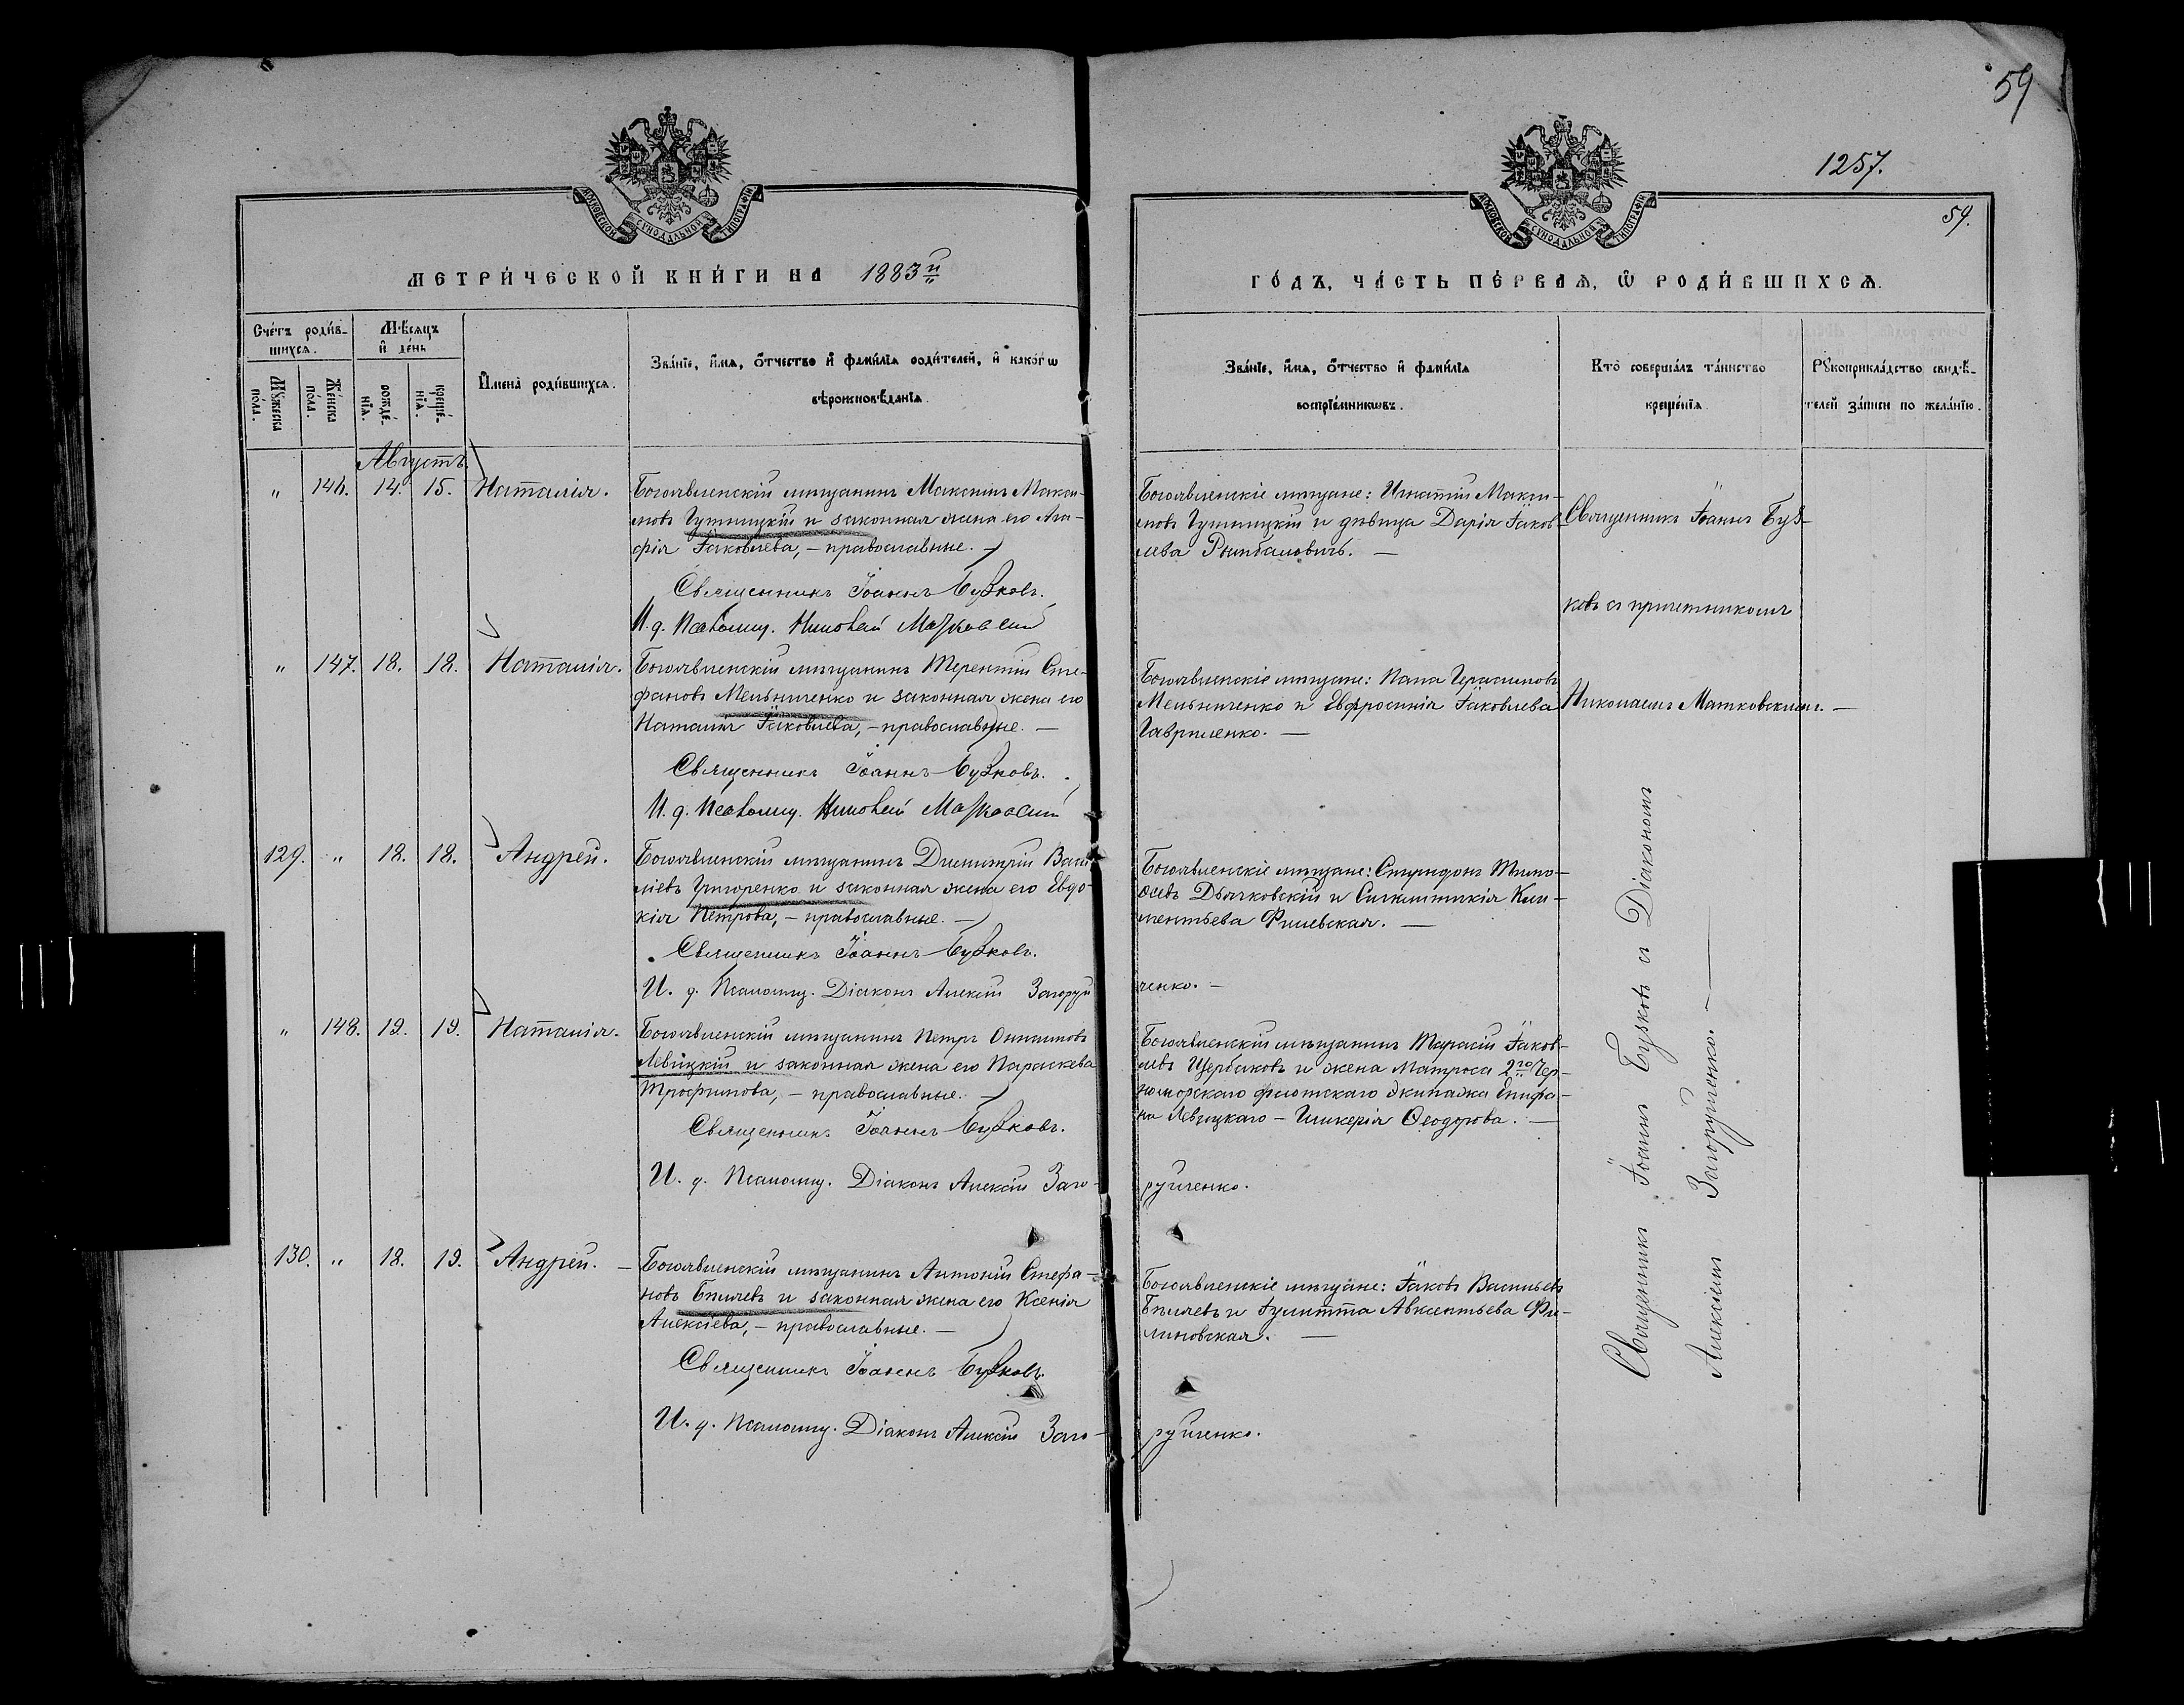 59
1257.
МОСКОВСКОЙ СѴНОДАЛЬНОЙ ТИПОГРАФІИ
МОСКОВСКОЙ СѴНОДАЛЬНОЙ ТИПОГРАФІИ
59.
МЕТРИ́ЧЕСКОЙ КНИ́ГИ НА 1883й
ГО́ДЪ, ЧА́СТЬ ПЕ́РВАЯ, Ѡ РОДИ́ВШИХСЯ.
Сче́тъ роди́в-
шихся.
Мꙋжеска пола.
Же́нска по́ла.
Мѣ́сяцъ
и҆ де́нь
рожде́-
нїѧ.
креще́-
нїѧ.
И҆мена̀ роди́вшихся.
Зва́нїе, и҆́мѧ, ѻ҆́тчество и҆ фами́лїѧ роди́телей, и҆ како́гѡ
вѣроисповѣ́данїѧ.
Зва́нїе, и҆́мѧ, ѻ҆́тчество и҆ фами́лїѧ
воспрїе́мникѡвъ.
Кто̀ соверша́лъ та́инство
креще́нїѧ
Рꙋкоприкла́дство свидѣ́-
телей за́писи по жела́нїю.
Августъ.
" 146. 14. 15. Наталія.
Богоявленскій мѣщанинъ Максимъ Макси-
мовъ Гутницкій и законная жена его Ага-
фія Іаковлева, – православные. –
Священникъ Іоаннъ Бузковъ.
И. д. Псаломщ. Николай Матковскій
Богоявленскіе мѣщане: Игнатій Макси-
мовъ Гутницкій и дѣвица Дарія Іаков-
лева Рымбаловичъ. –
Священникъ Іоаннъ Буз-
ковъ съ причетникомъ
Николаемъ Матковскимъ. –
" 147. 18. 18. Наталія.
Богоявленскій мѣщанинъ Терентій Сте-
фановъ Мельниченко и законная жена его
Наталія Іаковлева, – православные. –
Священникъ Іоаннъ Бузковъ.
И. д. Псаломщ. Николай Матковскій
Богоявленскіе мѣщане: Папа Герасимовъ
Мельниченко и Евфросинія Іаковлева
Гавриленко. –
129. " 18. 18. Андрей.
Богоявленскій мѣщанинъ Димитрій Васи-
ліевъ Григоренко и законная жена его Евдо-
кія Петрова, – православные. –
Священникъ Іоаннъ Бузковъ.
И. д. Псаломщ. Діаконъ Алексій Загоруй
ченко. –
Богоявленскіе мѣщане: Спиридонъ Тимо-
ѳеевъ Дьячковскій и Синклитикія Кли-
ментьева Филевская. –
" 148. 19. 19. Наталія.
Богоявленскій мѣщанинъ Петръ
Левицкій и законная жена его Параскева
Трофимова, – православные. –
Священникъ Іоаннъ Бузковъ.
И. д. Псаломщ. Діаконъ Алексій Заго-
руйченко.
Богоявленскій мѣщанинъ Тарасій Іаков-
левъ Щербаковъ и жена матроса 2го Чер-
номорскаго флотскаго экипажа Епифа-
на Левицкаго – Гликерія Ѳеодорова. –
130. " 18. 19. Андрей. –
Богоявленскій мѣщанинъ Антоній Стефа-
новъ Бѣляевъ и законная жена его Ксенія
Алексіева, – православные. –
Священникъ Іоаннъ Бузковъ.
И. д. Псаломщ. Діаконъ Алексій Заго-
руйченко.
Богоявленскіе мѣщане: Іаковъ Васильевъ
Бѣляевъ и Іулитта Авксентьева Фи-
линовская. –
Священникъ Іоаннъ Бузковъ съ Діакономъ
Алексіемъ Загоруйченко. –